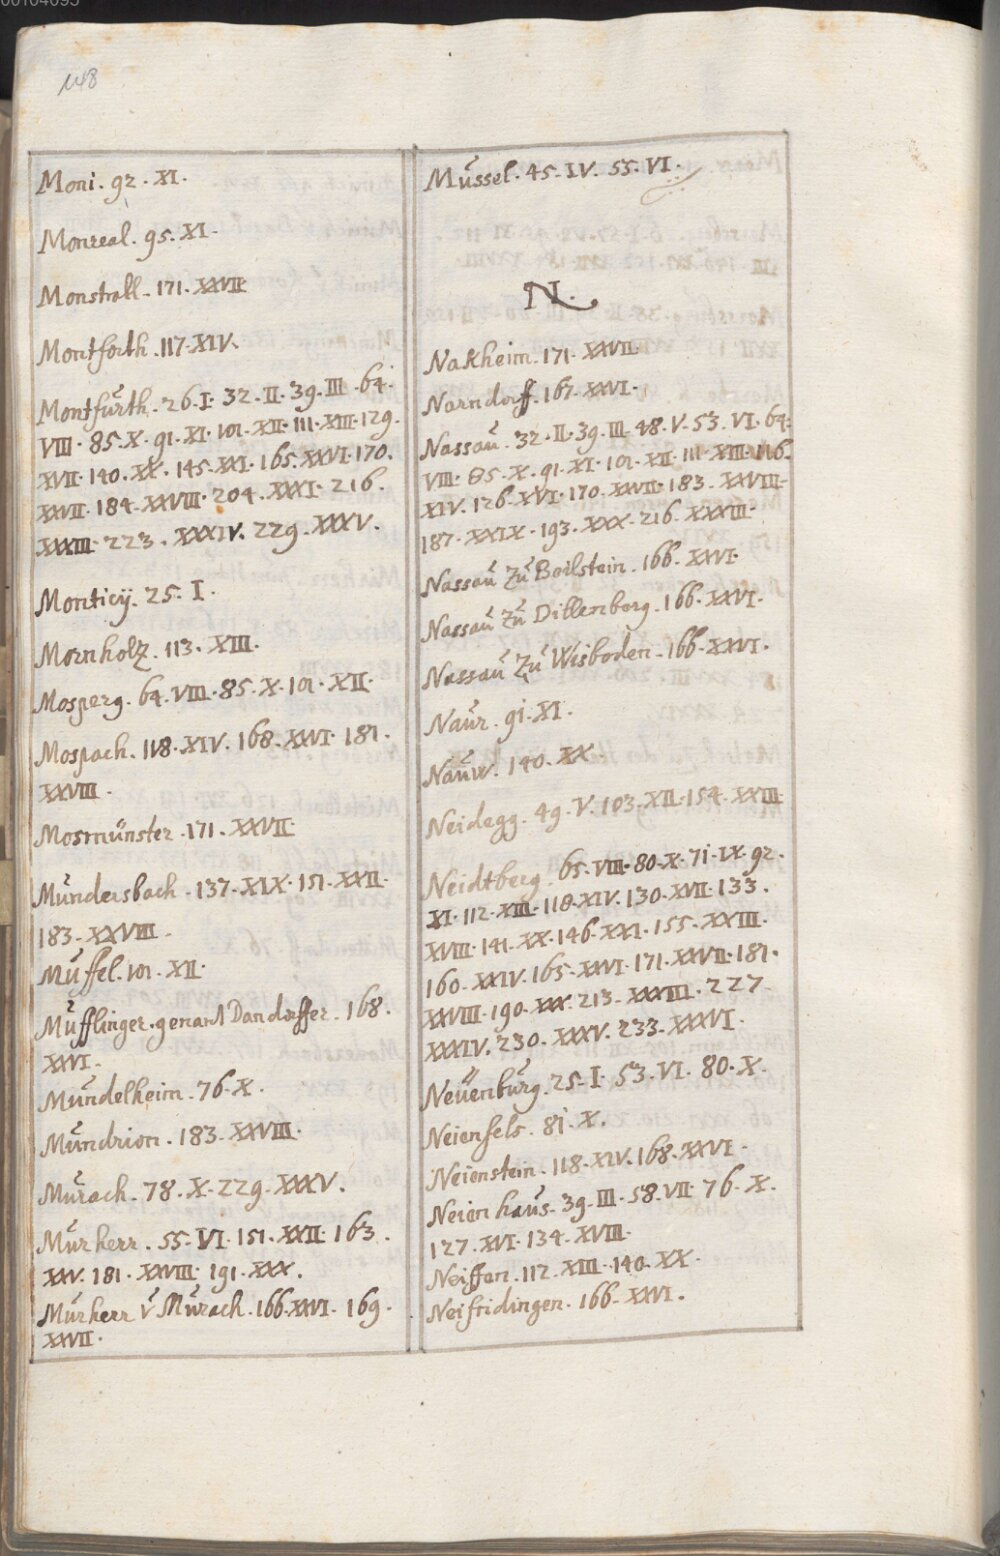 00104095
148
Moni. 92. XI.
Monreal. 95. XI.
Monstrall. 171. XXVII.
Montforth. 117. XIV.
Montfürth. 26. I. 32. II. 39. III. 64.
VIII. 85. X. 91. XI. 101. XII. 111. XIII. 129.
XVII. 140. XX. 145. XXI. 165. XXVI. 170.
XXVII. 184. XXVIII. 204. XXXI. 216.
XXXIII. 223. XXXIV. 229. XXXV.
Monticij. 25. I.
Mornholz. 113. XIII.
Mosperg. 64. VIII. 85. X. 101. XII.
Mospach. 118. XIV. 168. XXVI. 181.
XXVIII.
Mosmünster. 171. XXVII.
Mündersbach. 137. XIX. 151. XXII.
183. XXVIII.
Muffel. 101. XII.
Müfflinger. genant Dandorffer. 168.
XXVI.
Mündelheim. 76. X.
Mündrion. 183. XXVIII.
Mürach. 78. X. 229. XXXV.
Mürherr. 55. VI. 151. XXII. 163.
XXV. 181. XXVIII. 191. XXX.
Mürherr v Mürach. 166. XXVI. 169.
XXVII.
Müssel. 45. IV. 55. VI.
N.
Nakheim. 171. XXVII.
Narndorff. 167. XXVI.
Nassaü. 32. II. 39. III. 48. V. 53. VI. 64.
VIII. 85. X. 91. XI. 101. XII. 111. XIII. 116.
XIV. 126. XVI. 170. XXVII. 183. XXVIII.
187. XXIX. 193. XXX. 216. XXXIII.
Nassaü Zü Boilstein. 166. XXVI.
Nassaü Zü Dillenberg. 166. XXVI.
Nassaü Zü Wisboden. 166. XXVI.
Naür. 91. XI.
Naüw. 140. XX.
Neidegg. 49. V. 103. XII. 154. XXIII.
Neidtberg. 65. VIII. 80. X. 71. IX. 92.
XI. 112. XIII. 118. XIV. 130. XVII. 133.
XVIII. 141. XX. 146. XXI. 155. XXIII.
160. XXIV. 165. XXVI. 171. XXVII. 181.
XXVIII. 190. XXX. 213. XXXIII. 227.
XXXIV. 230. XXXV. 233. XXXVI.
Neüenbürg. 25. I. 53. VI. 80. X.
Neienfels. 81. X.
Neienstein. 118. XIV. 168. XXVI.
Neienhaüs. 39. III. 58. VII. 76. X.
127. XVI. 134. XVIII.
Neiffen. 112. XIII. 140. XX.
Neifridingen. 166. XXVI.